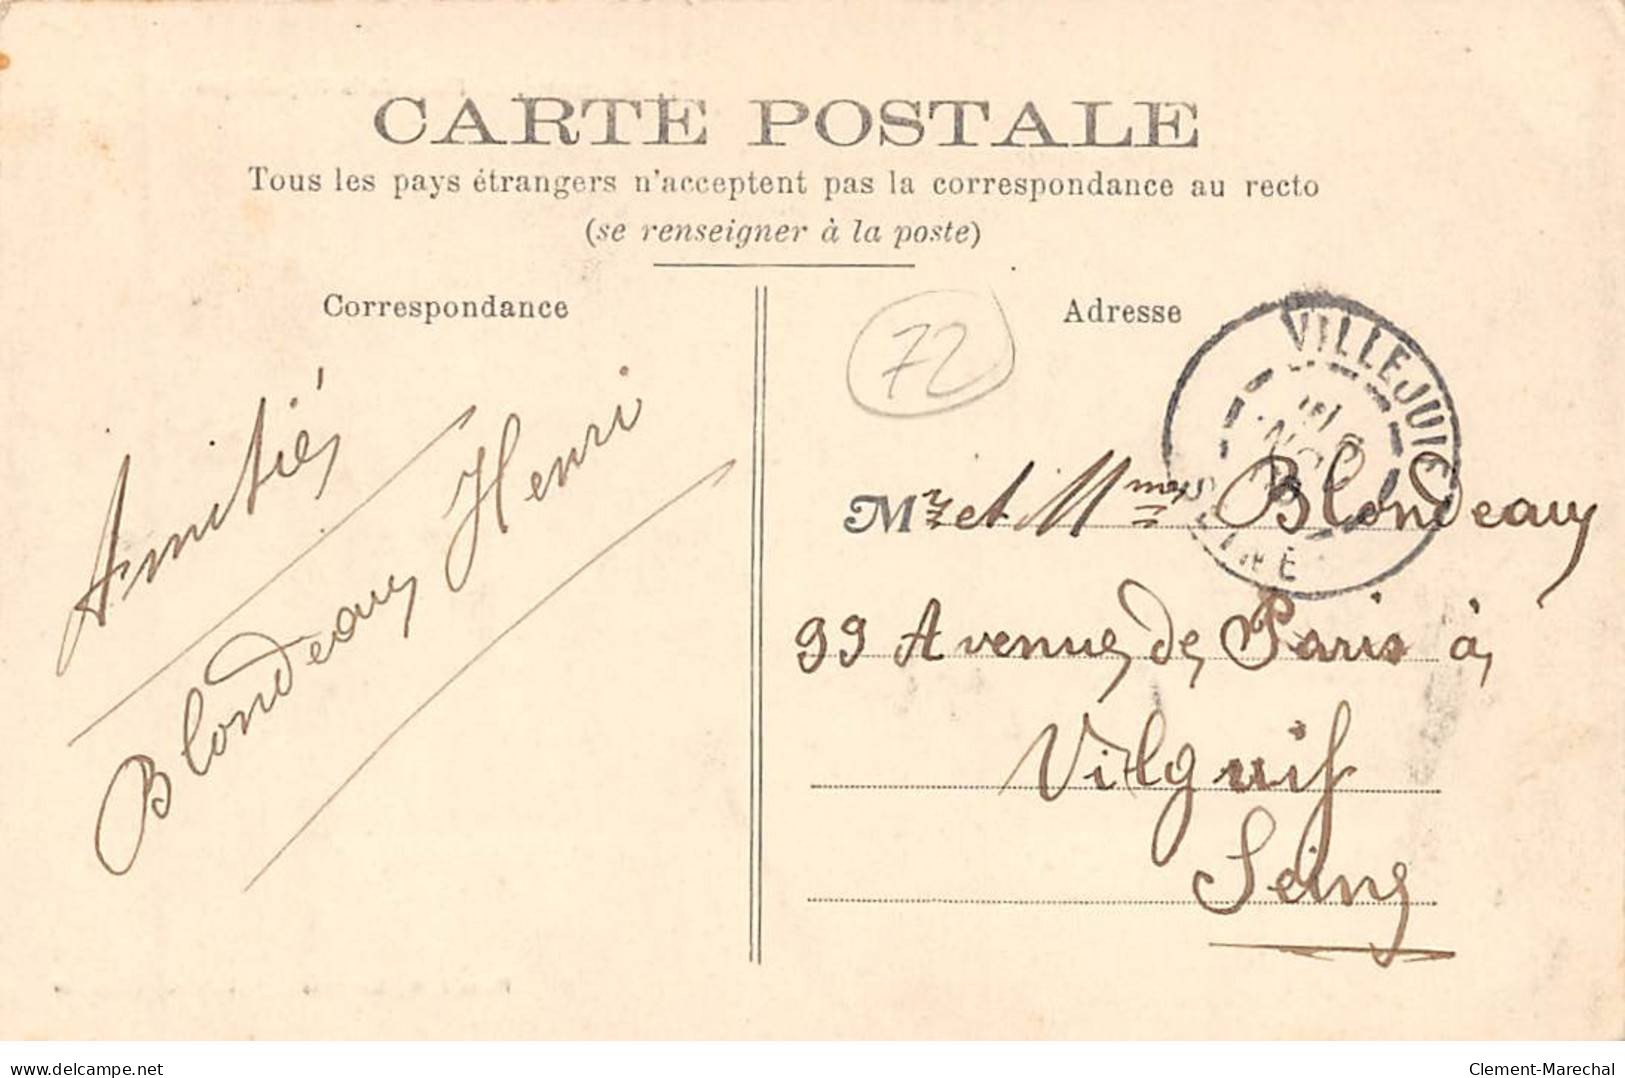 CARTE POSTALE
Tous les pays étrangers n'acceptent pas la correspondance au recto
(se renseigner à la poste)
Correspondance
Amitiés
Blondeau Henri
Adresse
72
VILLEJUIF
SEINE
Mr et Mme Blondeau
99 Avenue de Paris à
Vilguif
Seine
delcampe.net
Clement-Marechal